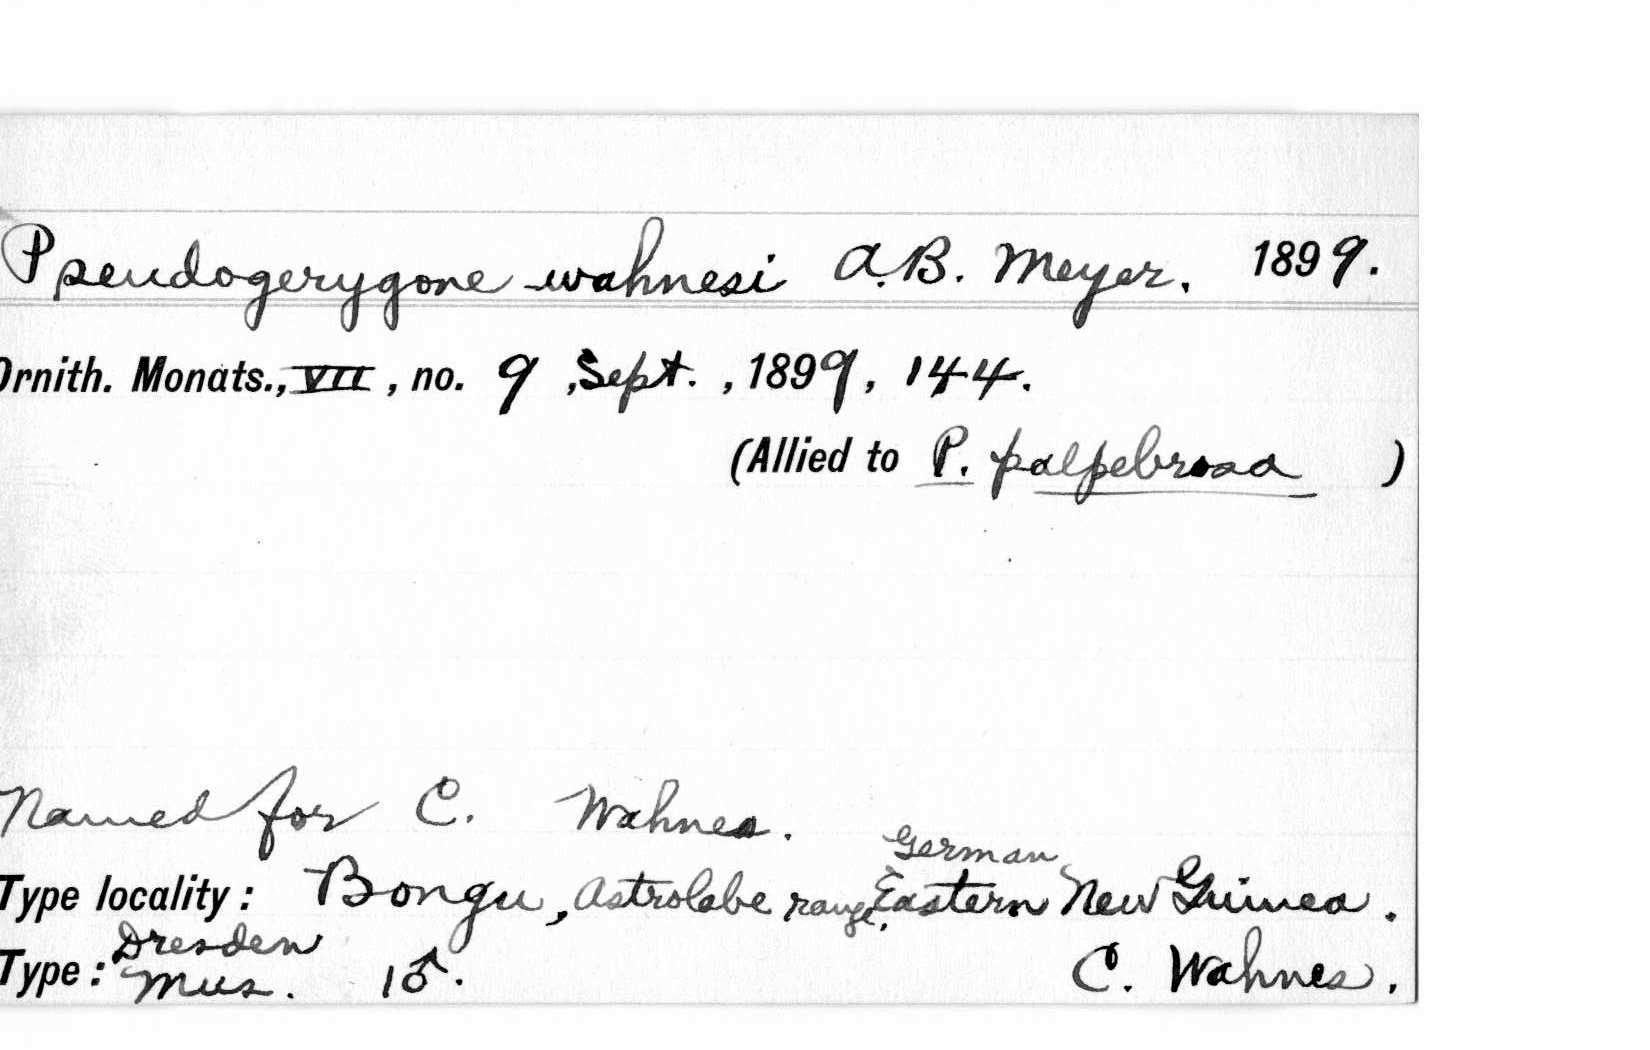 Pseudogerygone wahnesi A.B. Meyer. 1899.
Ornith. Monats., VII, no. 9, Sept., 1899, 144.
(Allied to P. palpebrosa )
Named for C. Wahnes.
German
Type locality: Bongu, Astrolabe range, Eastern New Guinea.
Dresden
Type: Mus. 1♂. C. Wahnes.